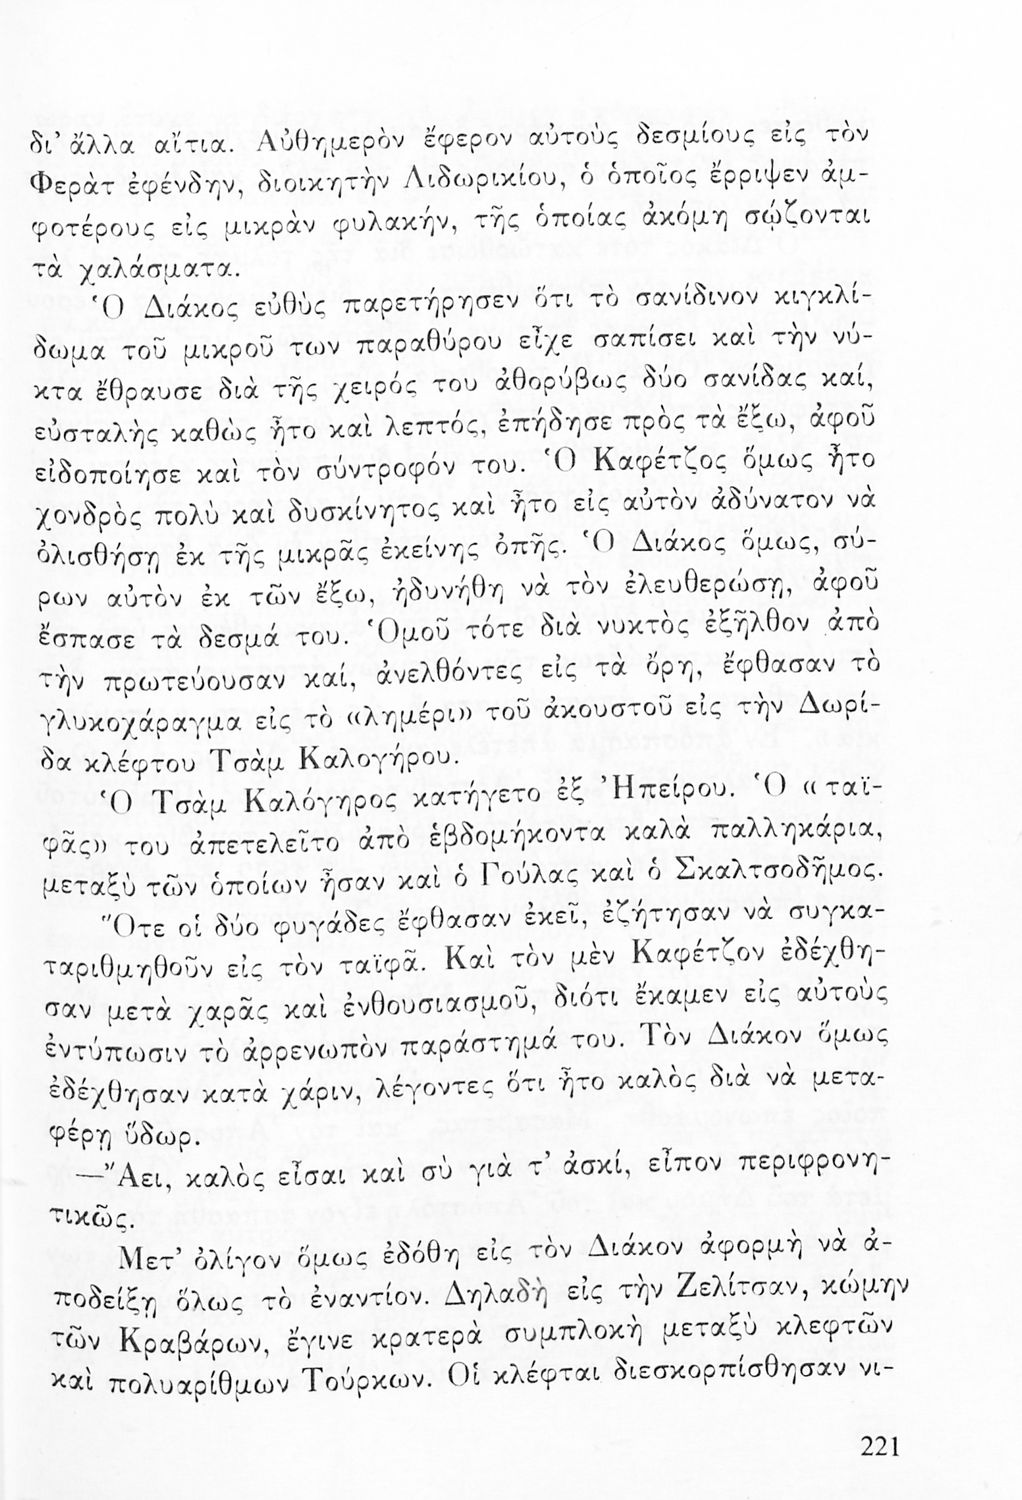 δι’ ἄλλα αἴτια. Αὐθημερὸν ἔφερον αὐτοὺς δεσμίους εἰς τὸν
Φερὰτ ἐφένδην, διοικητὴν Λιδωρικίου, ὁ ὁποῖος ἔρριψεν ἀμ-
φοτέρους εἰς μικρὰν φυλακήν, τῆς ὁποίας ἀκόμη σῴζονται
τὰ χαλάσματα.
Ὁ Διάκος εὐθὺς παρετήρησεν ὅτι τὸ σανίδινον κιγκλί-
δωμα τοῦ μικροῦ των παραθύρου εἶχε σαπίσει καὶ τὴν νύ-
κτα ἔθραυσε διὰ τῆς χειρός του ἀθορύβως δύο σανίδας καί,
εὐσταλὴς καθὼς ἦτο καὶ λεπτός, ἐπήδησε πρὸς τὰ ἔξω, ἀφοῦ
εἰδοποίησε καὶ τὸν σύντροφόν του. Ὁ Καφέτζος ὅμως ἦτο
χονδρὸς πολὺ καὶ δυσκίνητος καὶ ἦτο εἰς αὐτὸν ἀδύνατον νὰ
ὀλισθήσῃ ἐκ τῆς μικρᾶς ἐκείνης ὀπῆς. Ὁ Διάκος ὅμως, σύ-
ρων αὐτὸν ἐκ τῶν ἔξω, ἠδυνήθη νὰ τὸν ἐλευθερώσῃ, ἀφοῦ
ἔσπασε τὰ δεσμά του. Ὁμοῦ τότε διὰ νυκτὸς ἐξῆλθον ἀπὸ
τὴν πρωτεύουσαν καί, ἀνελθόντες εἰς τὰ ὄρη, ἔφθασαν τὸ
γλυκοχάραγμα εἰς τὸ «λημέρι» τοῦ ἀκουστοῦ εἰς τὴν Δωρί-
δα κλέφτου Τσὰμ Καλογήρου.
Ὁ Τσὰμ Καλόγηρος κατήγετο ἐξ Ἠπείρου. Ὁ «ταϊ-
φᾶς» του ἀπετελεῖτο ἀπὸ ἑβδομήκοντα καλὰ παλληκάρια,
μεταξὺ τῶν ὁποίων ἦσαν καὶ ὁ Γούλας καὶ ὁ Σκαλτσοδῆμος.
Ὅτε οἱ δύο φυγάδες ἔφθασαν ἐκεῖ, ἐζήτησαν νὰ συγκα-
ταριθμηθοῦν εἰς τὸν ταϊφᾶ. Καὶ τὸν μὲν Καφέτζον ἐδέχθη-
σαν μετὰ χαρᾶς καὶ ἐνθουσιασμοῦ, διότι ἔκαμεν εἰς αὐτοὺς
ἐντύπωσιν τὸ ἀρρενωπὸν παράστημά του. Τὸν Διάκον ὅμως
ἐδέχθησαν κατὰ χάριν, λέγοντες ὅτι ἦτο καλὸς διὰ νὰ μετα-
φέρῃ ὕδωρ.
—Ἄει, καλὸς εἶσαι καὶ σὺ γιὰ τ’ ἀσκί, εἶπον περιφρονη-
τικῶς.
Μετ’ ὀλίγον ὅμως ἐδόθη εἰς τὸν Διάκον ἀφορμὴ νὰ ἀ-
ποδείξῃ ὅλως τὸ ἐναντίον. Δηλαδὴ εἰς τὴν Ζελίτσαν, κώμην
τῶν Κραβάρων, ἔγινε κρατερὰ συμπλοκὴ μεταξὺ κλεφτῶν
καὶ πολυαρίθμων Τούρκων. Οἱ κλέφται διεσκορπίσθησαν νι-
221